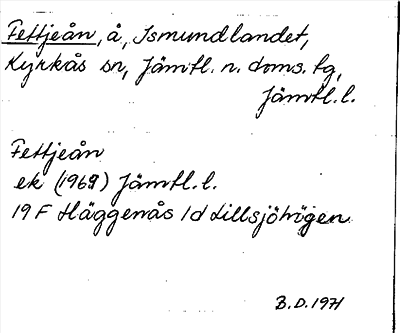 Fettjeån, å, Ismundlandet,
Kyrkås sn, Jämtl. n. doms. tg,
Jämtl. l.
Fettjeån
ek (1969) Jämtl. l.
19 F Häggenås 1d Lillsjöhögen
B.D. 1971